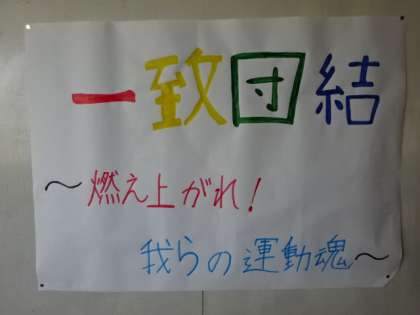 一致団結
～燃え上がれ!
我らの運動魂～